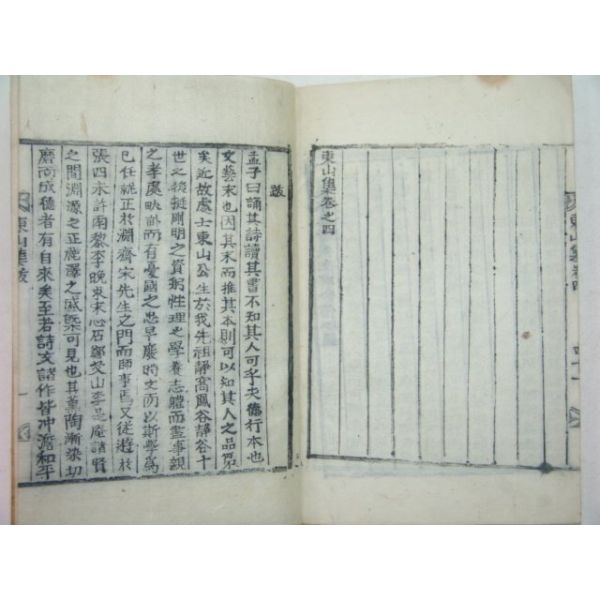 東山集卷之四
東山集卷四
跋
孟子曰誦其詩讀其書不知其人可乎夫德行本也
文藝末也因其末而推其本則可以知其人之品
矣近故處士東山公生於我先祖靜窩風谷靜谷十
世之後挺剛明之資躬性理之學養志體而盡事親
之孝處畎畝而有憂國之忠早廢時文而以斯學爲
已任就正於淵齋宋先生之門而師事焉又從遊於
張四未許南黎李晩東宋心石鄭艾山李是庵諸賢
之間淵源之正麗澤之咸槩可見也其薰陶漸染切
磨而成德者有自來矣至若詩文諸作皆冲澹和平
東山集跋
一